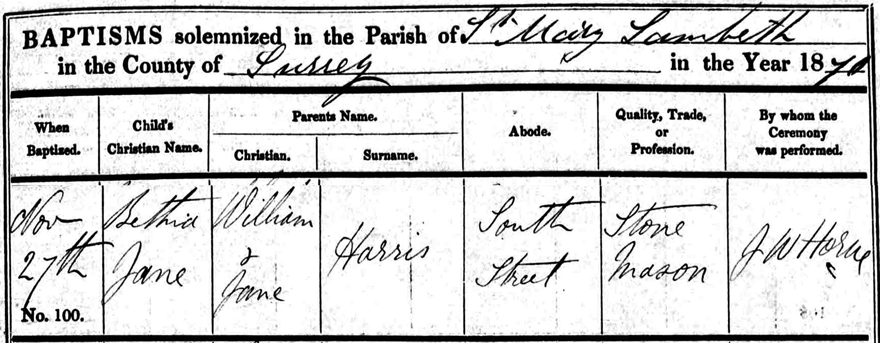 BAPTISMS solemnized in the Parish of St Mary Lambeth
in the County of Surrey in the Year 1870
When Baptized.
Child's Christian Name.
Parents Name.
Christian.
Surname.
Abode.
Quality, Trade, or Profession.
By whom the Ceremony was performed.
Nov Bethia William South Stone
& Harris J W Horne
27th Jane Jane Street Mason
No. 100.